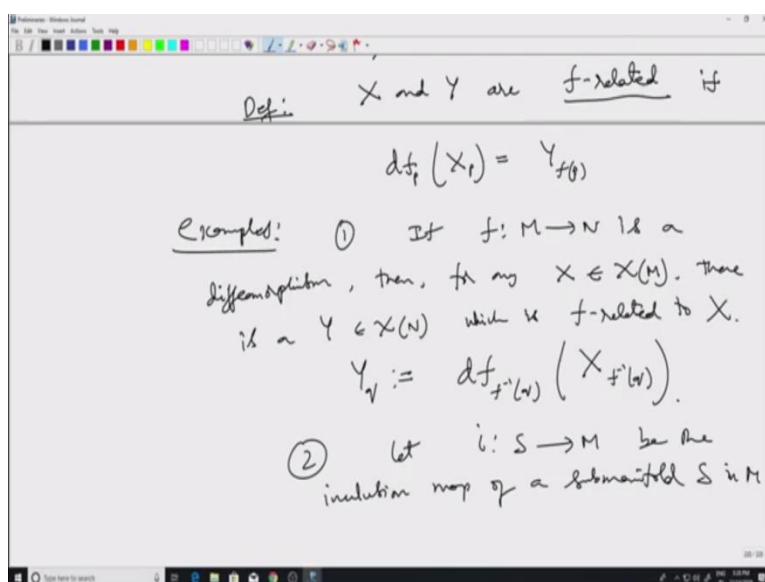 Preliminaries - Windows Journal
File Edit View Insert Actions Tools Help
Def: X and Y are f-related if
df_p (X_p) = Y_f(p)
Examples: ① If f: M → N is a
diffeomorphism, then, for any X ∈ X(M). there
is a Y ∈ X(N) which is f-related to X.
Y_q := df_f⁻¹(q) (X_f⁻¹(q)).
② Let i: S → M be the
inclusion map of a submanifold S in M
Type here to search